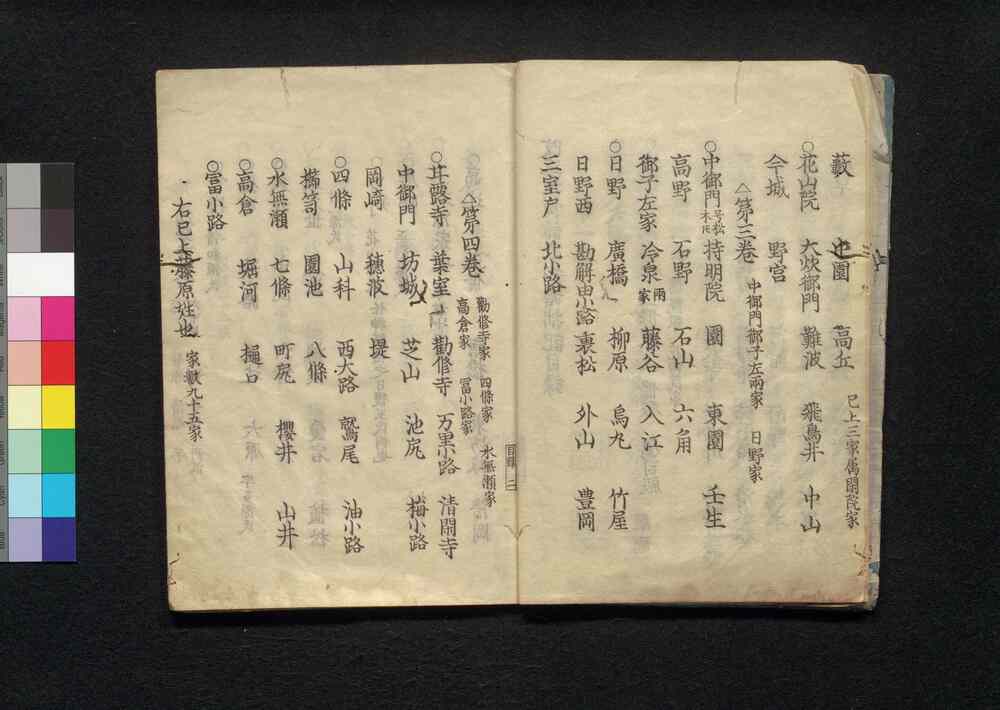 藪 中園 高丘 已上三家属閑院家
○花山院 大炊御門 難波 飛鳥井 中山
今城 野宮
△第三巻 中御門御子左両家 日野家
○中御門 号松木氏 持明院 園 東園 壬生
高野 石野 石山 六角
御子左家 冷泉 両家 藤谷 入江
○日野 廣橋 柳原 烏丸 竹屋
日野西 勘解由小路 裏松 外山 豊岡
三室戸 北小路
目録 二
△第四巻 勸修寺家 四條家 水無瀬家 高倉家 冨小路家
○甘露寺 葉室 勸修寺 万里小路 清閑寺
中御門 坊城 芝山 池尻 梅小路
岡崎 穂波 堤
○四條 山科 西大路 鷲尾 油小路
櫛笥 園池 八條
○水無瀬 七條 町尻 櫻井 山井
○高倉 堀河 樋口
○冨小路
右已上藤原姓也 家数九十五家